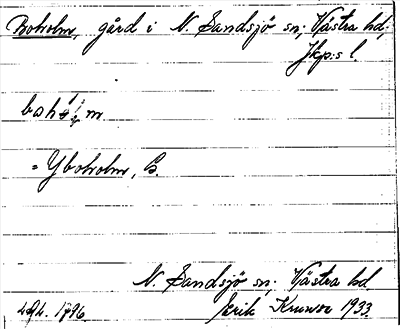 Boholm, gård i N. Sandsjö sn; Västra hd;
Jkp:s l.
= Yboholm, B.
N. Sandsjö sn; Västra hd.
Erik Kruuse 1933.